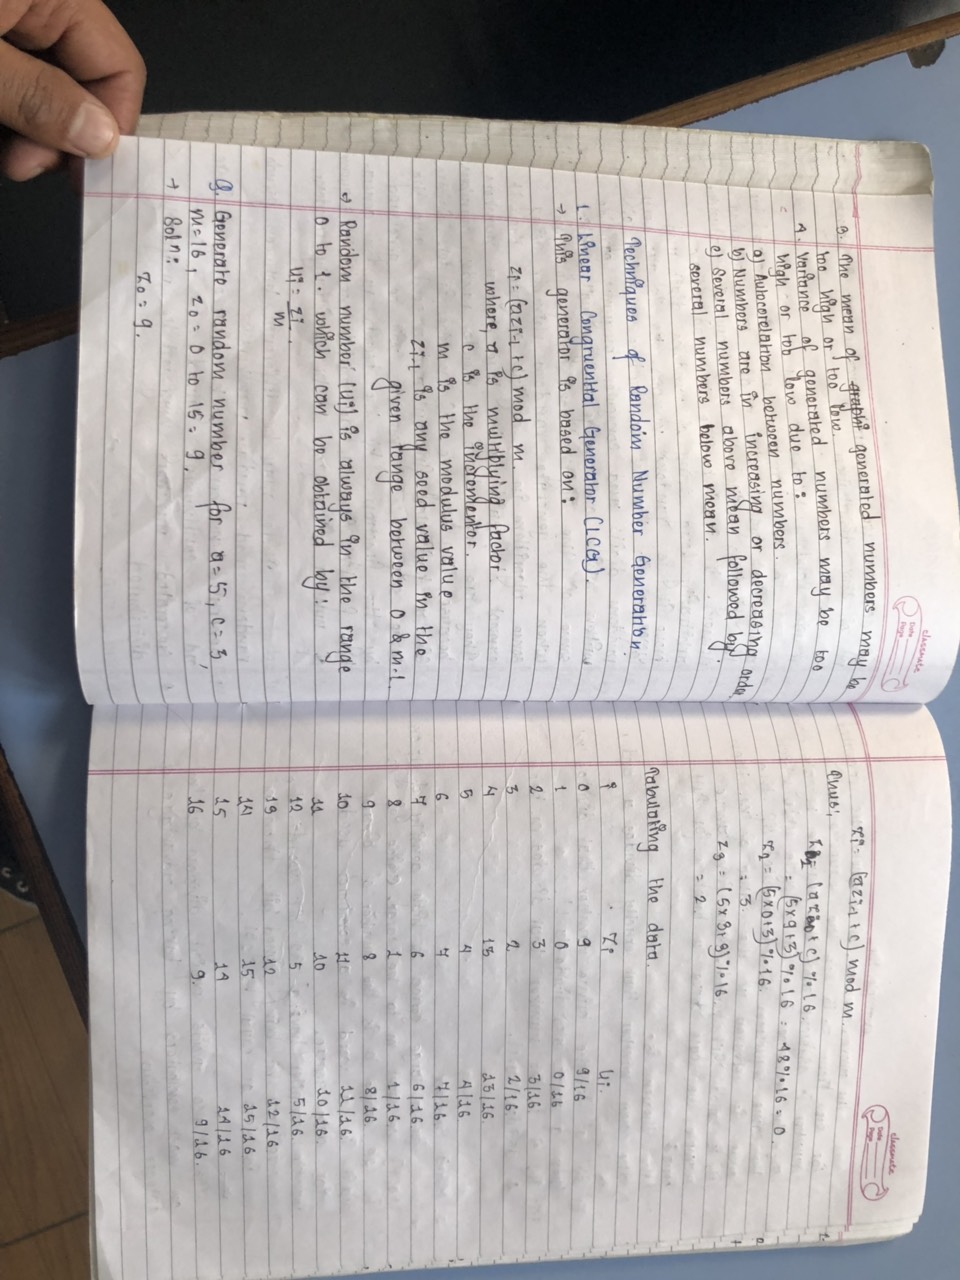 classmate
Date
Page
3. The mean of generated numbers may be
too high or too low.
4. Variance of generated numbers may be too
high or too low due to:
a) Autocorelation between numbers.
b) Numbers are in increasing or decreasing order
c) Several numbers above mean followed by
several numbers below mean.
Techniques of Random Number Generation
1. Linear Congruential Generator (LCG).
→ This generator is based on:
zi = (azi-1 + c) mod m.
where, a is multiplying factor
c is the incrementor.
m is the modulus value
zi-1 is any seed value in the
given range between 0 & m-1.
→ Random number (ui) is always in the range
0 to 1. which can be obtained by:
ui = zi
m
Q. Generate random number for a=5, c=3,
m=16, z0 = 0 to 15 = 9.
→ Soln:
z0 = 9.
classmate
Date
Page
zi = (azi-1 + c) mod m.
Thus,
(az0 + c) % 16.
= (5x9+3) % 16 = 48%16 = 0
z2 = (5x0+3) % 16.
= 3.
z3 = (5x3+3) % 16
= 2.
Tabulating the data.
i Zi Ui.
0 9 9/16
1 0 0/16
2 3 3/16
3 2 2/16.
4 13 13/16.
5 4 4/16
6 7 7/16
7 6 6/16
8 1 1/16
9 8 8/16
10 11 11/16
11 10 10/16.
12 5 5/16
13 12 12/16
14 15 15/16
15 14 14/16
16 9. 9/16.